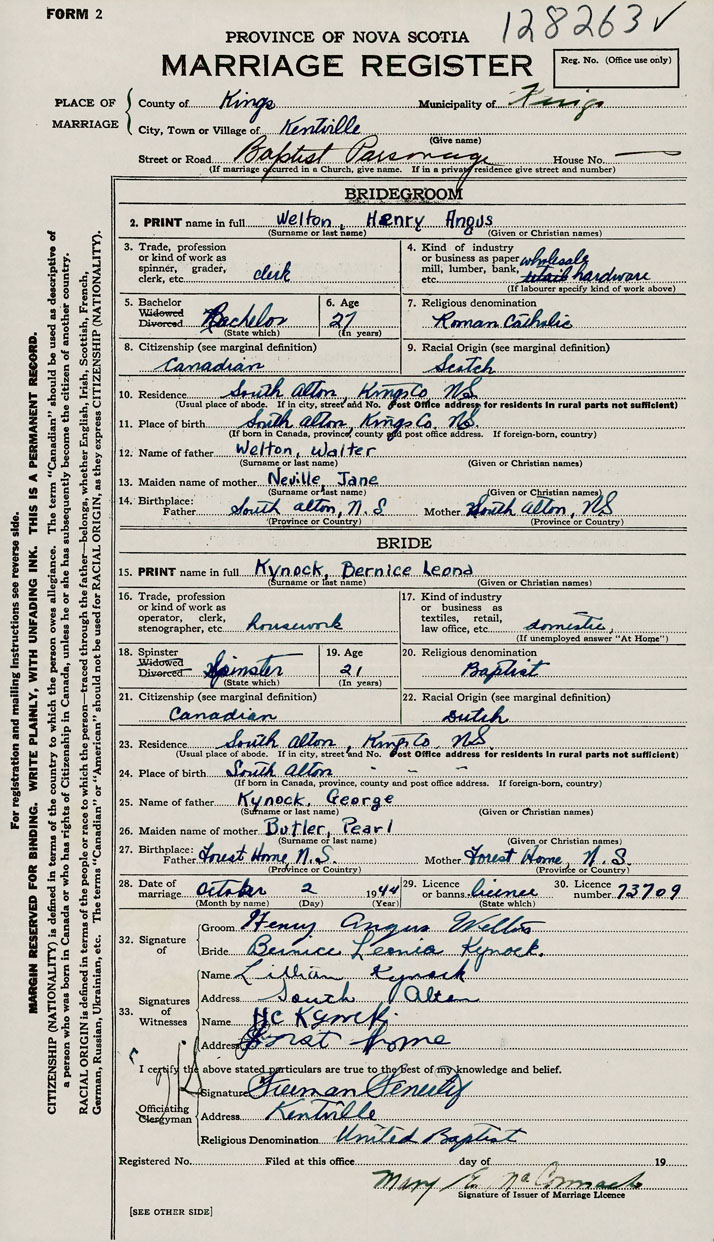 FORM 2
128263 ✓
PROVINCE OF NOVA SCOTIA
MARRIAGE REGISTER
Reg. No. (Office use only)
PLACE OF MARRIAGE
County of Kings Municipality of Kings
City, Town or Village of Kentville
(Give name)
Street or Road Baptist Parsonage House No.
(If marriage occurred in a Church, give name. If in a private residence give street and number)
BRIDEGROOM
2. PRINT name in full Welton, Henry Angus
(Surname or last name) (Given or Christian names)
3. Trade, profession or kind of work as spinner, grader, clerk, etc. clerk
4. Kind of industry or business as paper mill, lumber, bank, etc. wholesale retail hardware
(If labourer specify kind of work above)
5. Bachelor Widowed Divorced Bachelor
(State which)
6. Age 27
(In years)
7. Religious denomination
Roman Catholic
8. Citizenship (see marginal definition)
Canadian
9. Racial Origin (see marginal definition)
Scotch
10. Residence South Alton, Kings Co. N.S.
(Usual place of abode. If in city, street and No. Post Office address for residents in rural parts not sufficient)
11. Place of birth South Alton, Kings Co. N.S.
(If born in Canada, province, county and post office address. If foreign-born, country)
12. Name of father Welton, Walter
(Surname or last name) (Given or Christian names)
13. Maiden name of mother Neville, Jane
(Surname or last name) (Given or Christian names)
14. Birthplace: Father South Alton, N.S Mother South Alton, NS
(Province or Country) (Province or Country)
BRIDE
15. PRINT name in full Kynock, Bernice Leona
(Surname or last name) (Given or Christian names)
16. Trade, profession or kind of work as operator, clerk, stenographer, etc. housework
17. Kind of industry or business as textiles, retail, law office, etc. domestic
(If unemployed answer "At Home")
18. Spinster Widowed Divorced Spinster
(State which)
19. Age 21
(In years)
20. Religious denomination
Baptist
21. Citizenship (see marginal definition)
Canadian
22. Racial Origin (see marginal definition)
Dutch
23. Residence South Alton, Kings Co. N.S.
(Usual place of abode. If in city, street and No. Post Office address for residents in rural parts not sufficient)
24. Place of birth South Alton - - -
(If born in Canada, province, county and post office address. If foreign-born, country)
25. Name of father Kynock, George
(Surname or last name) (Given or Christian names)
26. Maiden name of mother Butler, Pearl
(Surname or last name) (Given or Christian names)
27. Birthplace: Father Forest Home, N.S. Mother Forest Home, N.S.
(Province or Country) (Province or Country)
28. Date of marriage October 2 1944
(Month by name) (Day) (Year)
29. Licence or banns license
(State which)
30. Licence number 73709
32. Signature of
Groom Henry Angus Welton
Bride Bernice Leonia Kynock.
33. Signatures of Witnesses
Name Lillian Kynock
Address South Alton
Name HC Kynock.
Address Forest home
I certify the above stated particulars are true to the best of my knowledge and belief.
Officiating Clergyman
Signature Freeman Fenerty
Address Kentville
Religious Denomination United Baptist
Registered No. Filed at this office day of 19
Mary E. McCormack
Signature of Issuer of Marriage Licence
[SEE OTHER SIDE]
For registration and mailing instructions see reverse side.
MARGIN RESERVED FOR BINDING. WRITE PLAINLY, WITH UNFADING INK. THIS IS A PERMANENT RECORD.
CITIZENSHIP (NATIONALITY) is defined in terms of the country to which the person owes allegiance. The term "Canadian" should be used as descriptive of
a person who was born in Canada or who has rights of Citizenship in Canada, unless he or she has subsequently become the citizen of another country.
RACIAL ORIGIN is defined in terms of the people or race to which the person—traced through the father—belongs, whether English, Irish, Scottish, French,
German, Russian, Ukrainian, etc. The terms "Canadian" or "American" should not be used for RACIAL ORIGIN, as they express CITIZENSHIP (NATIONALITY).